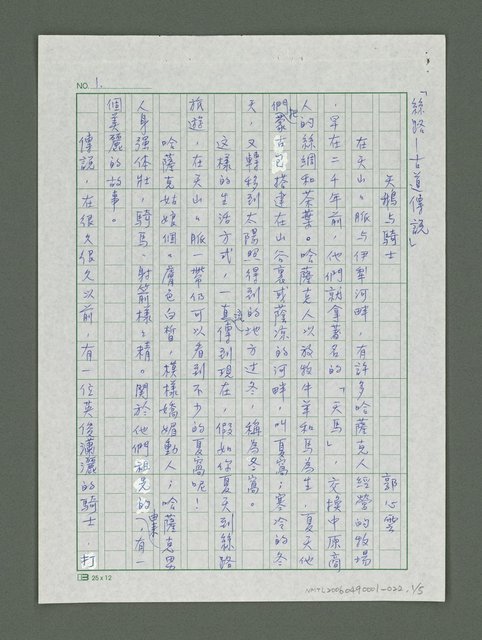 NO. 1.
「絲路—古道傳說」
天鵝与騎士　郭心雲
在天山山脈与伊犁河畔，有許多哈薩克人經營的牧場
，早在二千年前，他們就拿著名的「天馬」，交換中原商
人的絲綢和茶葉。哈薩克人以放牧牛羊和馬為生，夏天他
們把蒙古包搭建在山谷裏或蔭涼的河畔，叫夏窩；寒冷的冬
天，又轉移到太陽照得到的地方过冬，稱為冬窩。
这樣的生活方式，一直流傳到現在，假如你夏天到絲路
旅遊，在天山山脈一帶仍可以看到不少的夏窩呢！
哈薩克姑娘個個膚色白皙，模樣嬌媚動人；哈薩克男
人身强体壯，騎馬、射箭樣樣精。関於他們祖先的由來，有一
個美麗的故事。
傳說，在很久很久以前，有一位英俊瀟灑的騎士，打
25x12
NMTL20060490001-022, 1/5